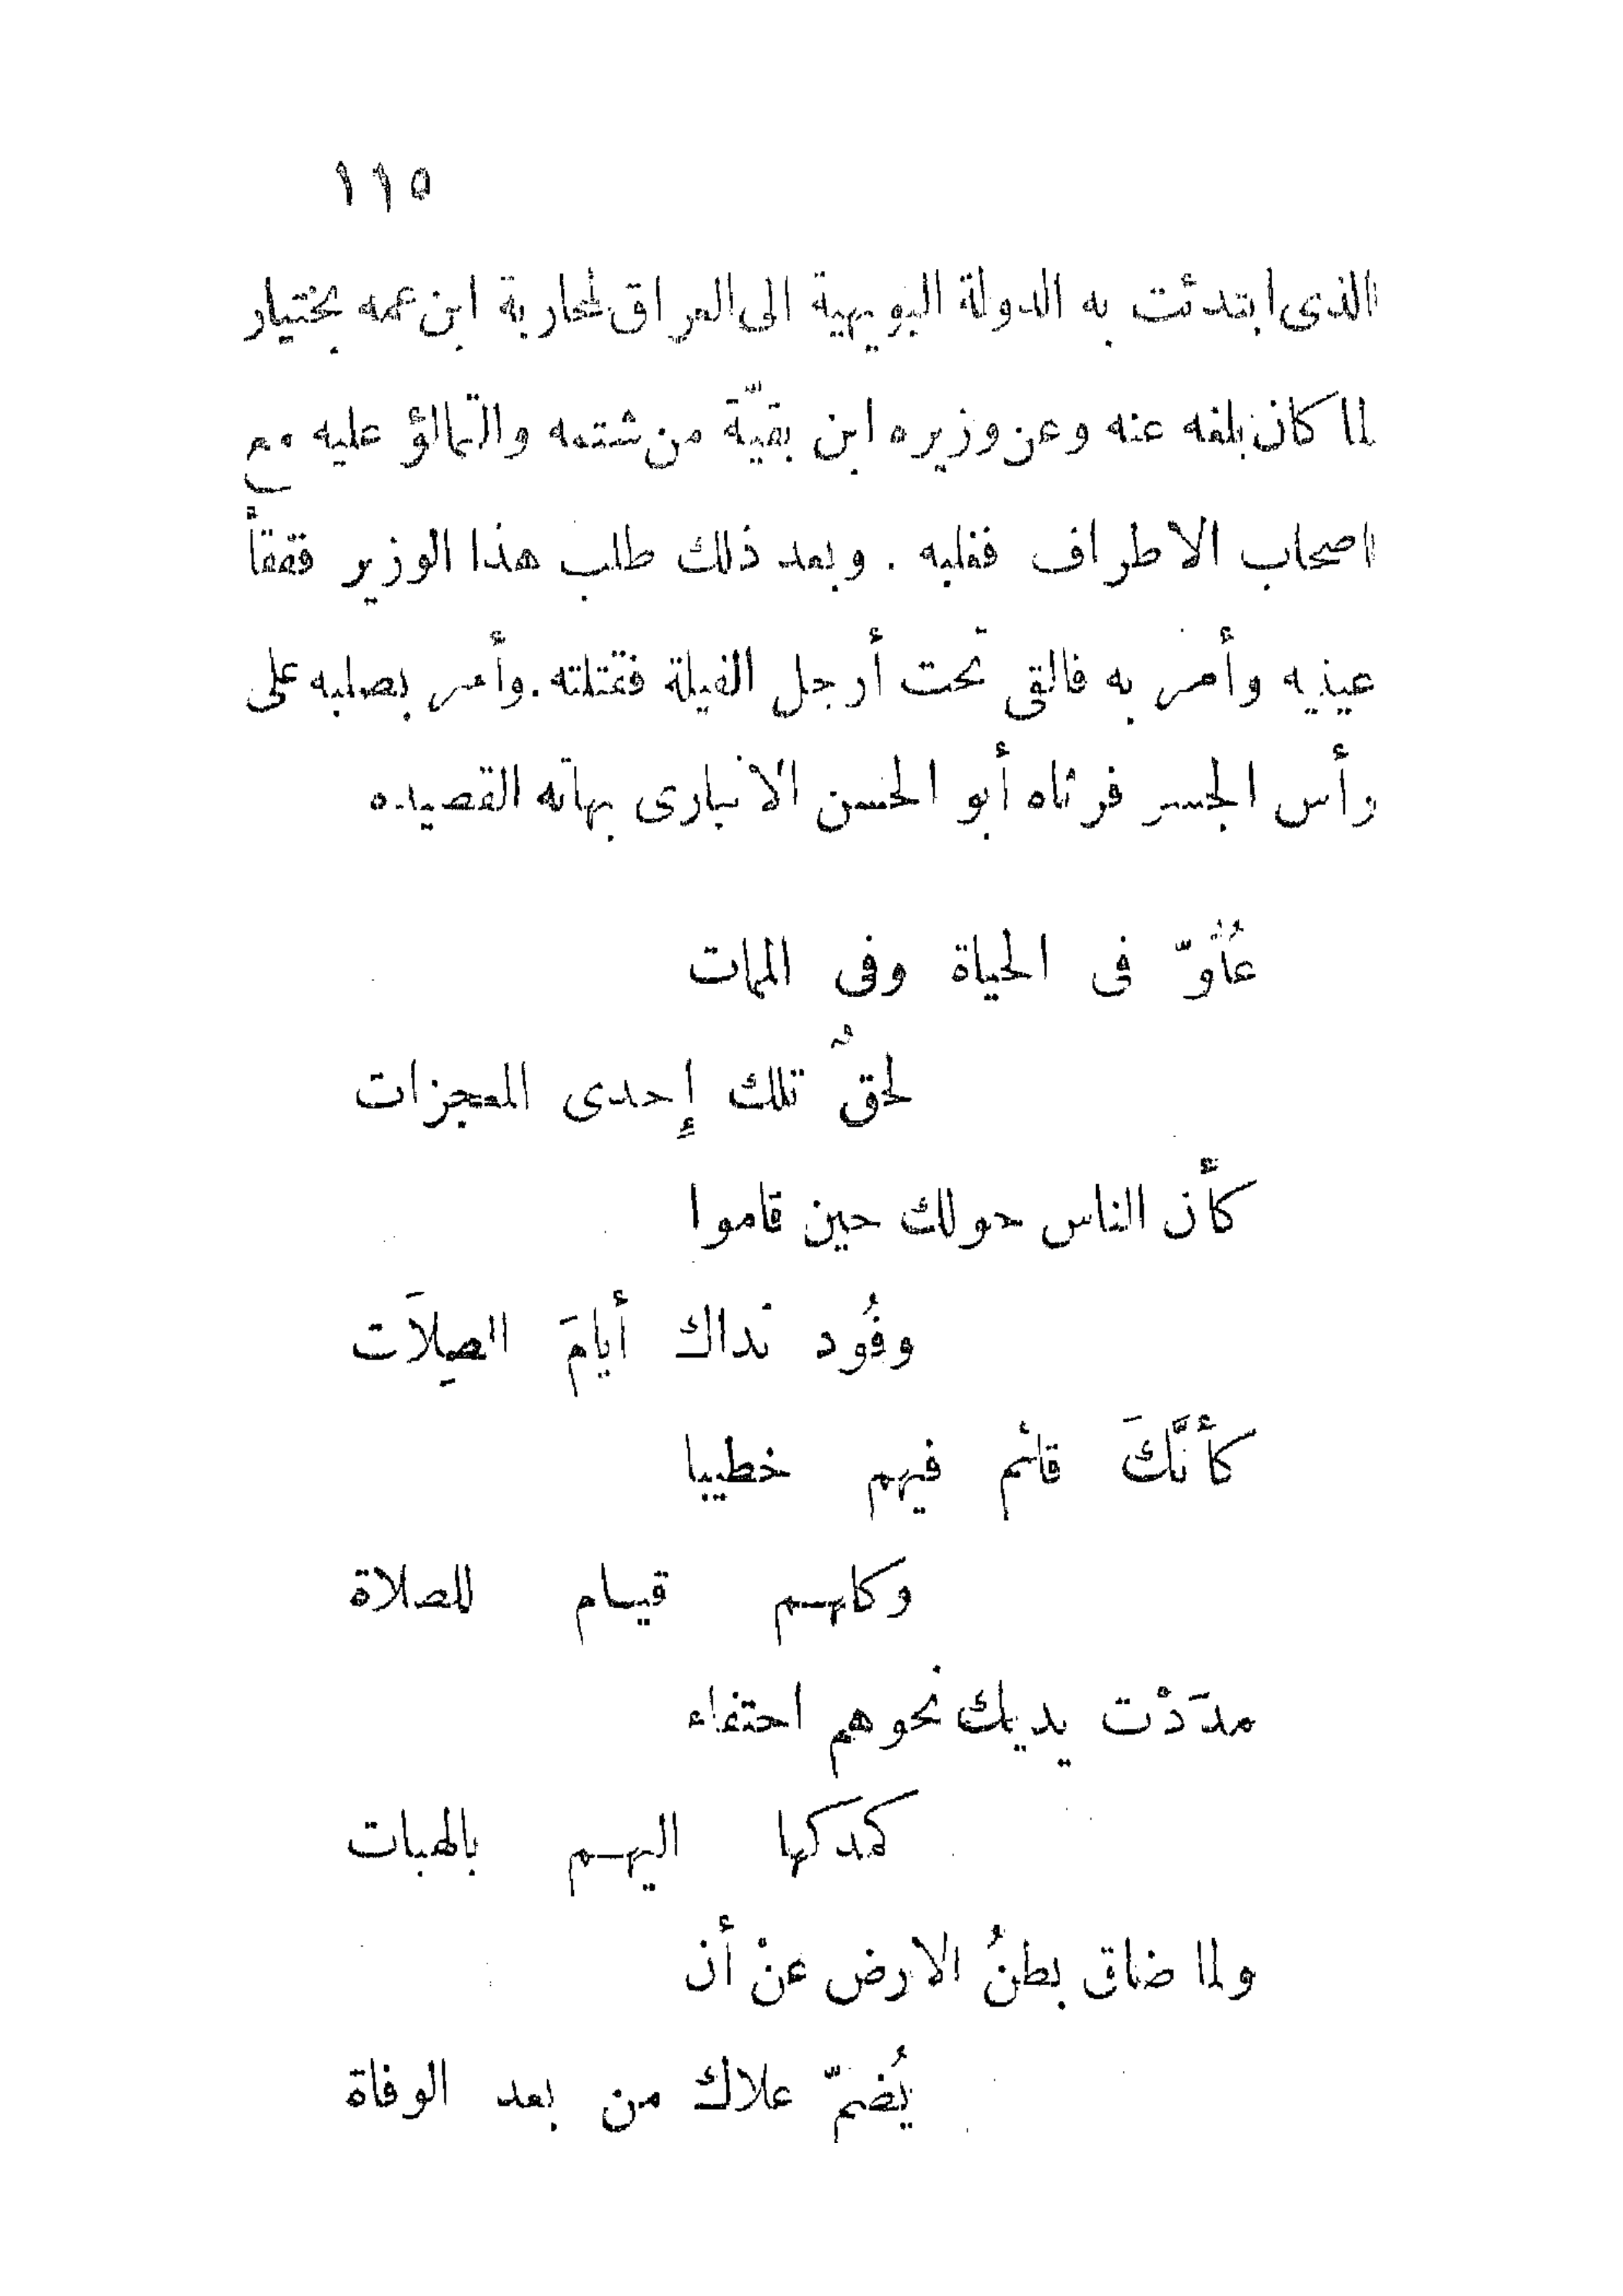 ١١٥
الذى ابتدئت به الدولة البويهية الى العراق لمحاربة ابن عمه بختيار
لما كان بلغه عنه وعن وزيره ابن بقيّة من شتمه والتمالؤ عليه مع
اصحاب الاطراف فغلبه . وبعد ذلك طلب هذا الوزير ففقأ
عينيه وأمر به فالقى تحت أرجل الفيلة فقتلته . وأمر بصلبه على
رأس الجسر فرثاه أبو الحسن الانبارى بهاته القصيده
عُلُوّ فى الحياة وفى الممات
لحقٌ تلك إحدى المعجزات
كأن الناس حولك حين قاموا
وفُود نداك أيامَ الصِلاَت
كأنَّكَ قائم فيهم خطيبا
وكلهم قيام للصلاة
مدَدْت يديك نحوهم احتفاء
كمدكها اليهم بالهبات
ولما ضاق بطنُ الارض عنْ أن
يُضمّ علاك من بعد الوفاة